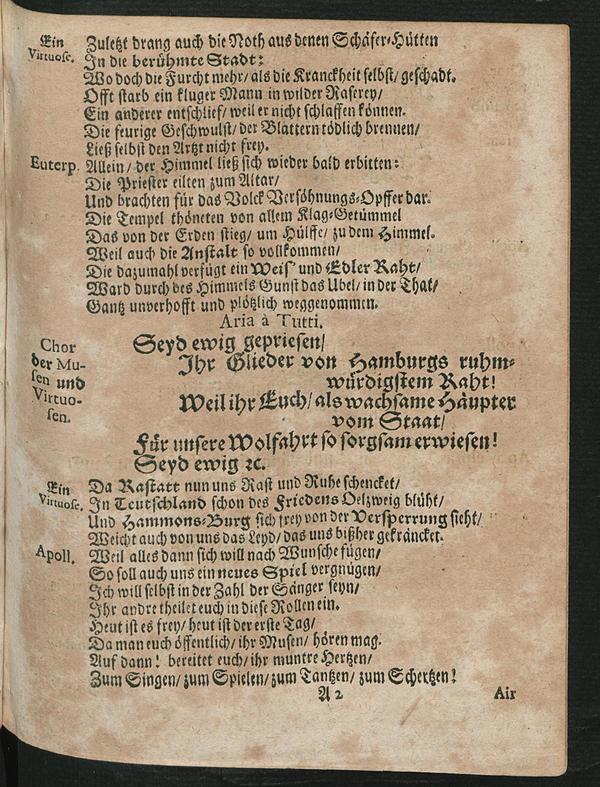 Ein Virtuose. Zuletzt drang auch die Noth aus denen Schäfer-Hütten
In die berühmte Stadt:
Wo doch die Furcht mehr/ als die Kranckheit selbst/ geschadt.
Offt starb ein kluger Mann in wilder Raserey/
Ein anderer entschlief/ weil er nicht schlaffen können.
Die feurige Geschwulst/ der Blattern tödlich brennen/
Ließ selbst den Artzt nicht frey.
Euterp. Allein/ der Himmel ließ sich wieder bald erbitten:
Die Priester eilten zum Altar/
Und brachten für das Volck Versöhnungs-Opffer dar.
Die Tempel thöneten von allem Klag-Getümmel
Das von der Erden stieg/ um Hülffe/ zu dem Himmel.
Weil auch die Anstalt so vollkommen/
Die dazumahl verfügt ein Weis' und Edler Raht/
Ward durch des Himmels Gunst das Ubel/ in der That/
Gantz unverhofft und plötzlich weggenommen.
Aria à Tutti.
Chor der Musen und Virtuosen. Seyd ewig gepriesen/
Ihr Glieder von Hamburgs ruhm-
würdigstem Raht!
Weil ihr Euch/ als wachsame Häupter
vom Staat/
Für unsere Wolfahrt so sorgsam erwiesen!
Seyd ewig ꝛc.
Ein Virtuose. Da Rastatt nun uns Rast und Ruhe schencket/
In Teutschland schon des Friedens Oelzweig blüht/
Und Hammons-Burg sich frey von der Versperrung sieht/
Weicht auch von uns das Leyd/ das uns bißher gekräncket.
Apoll. Weil alles dann sich will nach Wunsche fügen/
So soll auch uns ein neues Spiel vergnügen/
Ich will selbst in der Zahl der Sänger seyn/
Ihr andre theilet euch in diese Rollen ein.
Heut ist es frey/ heut ist der erste Tag/
Da man euch öffentlich/ ihr Musen/ hören mag.
Auf dann! bereitet euch/ ihr muntre Hertzen/
Zum Singen/ zum Spielen/ zum Tantzen/ zum Schertzen!
A 2 Air